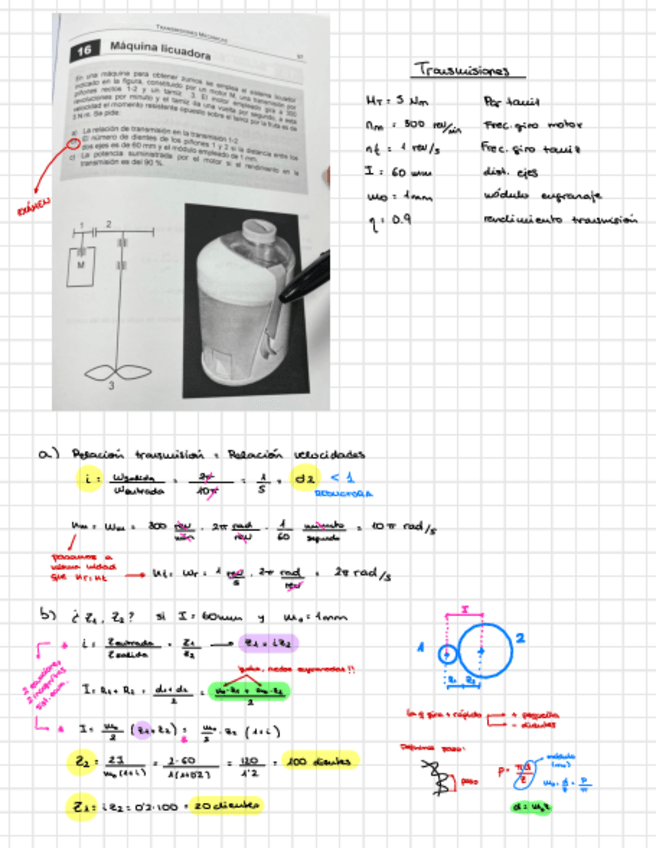 TRANSMISIONES MECÁNICAS
97
16 Máquina licuadora
En una máquina para obtener zumos se emplea el sistema licuador
indicado en la figura, constituido por un motor M, una transmisión por
piñones rectos 1-2 y un tamiz 3. El motor empleado gira a 300
revoluciones por minuto y el tamiz da una vuelta por segundo, a esta
velocidad el momento resistente opuesto sobre el tamiz por la fruta es de
5 N·m. Se pide:
a) La relación de transmisión en la transmisión 1-2.
El número de dientes de los piñones 1 y 2 si la distancia entre los
dos ejes es de 60 mm y el módulo empleado de 1 mm.
c) La potencia suministrada por el motor si el rendimiento en la
transmisión es del 90 %.
EXÁMEN
1 2
M
3
Transmisiones
Mr = 5 Nm Par tamiz
nm = 300 rev/min Frec. giro motor
nt = 1 rev/s Frec. giro tamiz
I = 60 mm dist. ejes
mo = 1mm módulo engranaje
η = 0.9 rendimiento transmisión
a) Relación transmisión = Relación velocidades
i = Wsalida / Wentrada = 2π / 10π = 1/5 = 0'2 < 1
REDUCTORA
nm = Wm = 300 rev/min · 2π rad/rev · 1/60 minuto/segundo = 10π rad/s
pasamos a
misma unidad
que
nt = Wt = 1 rev/s · 2π rad/rev = 2π rad/s
b) ¿Z1, Z2? si I = 60mm y mo = 1mm
i = Zentrada / Zsalida = Z1 / Z2 → Z1 = i Z2
2 ecuaciones
2 incógnitas
ruedas engranadas!!
I = R1 + R2 = d1 + d2 / 2 = mo·Z1 + mo·Z2 / 2
I = mo/2 (Z1 + Z2) = mo/2 · Z2 (1+i)
Z2 = 2I / mo(1+i) = 2·60 / 1(1+0'2) = 120 / 1'2 = 100 dientes
Z1 = i Z2 = 0'2·100 = 20 dientes
I
1 2
R1 R2
la q gira + rápido + pequeña
- dientes
Definimos paso:
paso
P = πd / Z
módulo
(mo)
mo = d/Z = P/π
d = mo Z